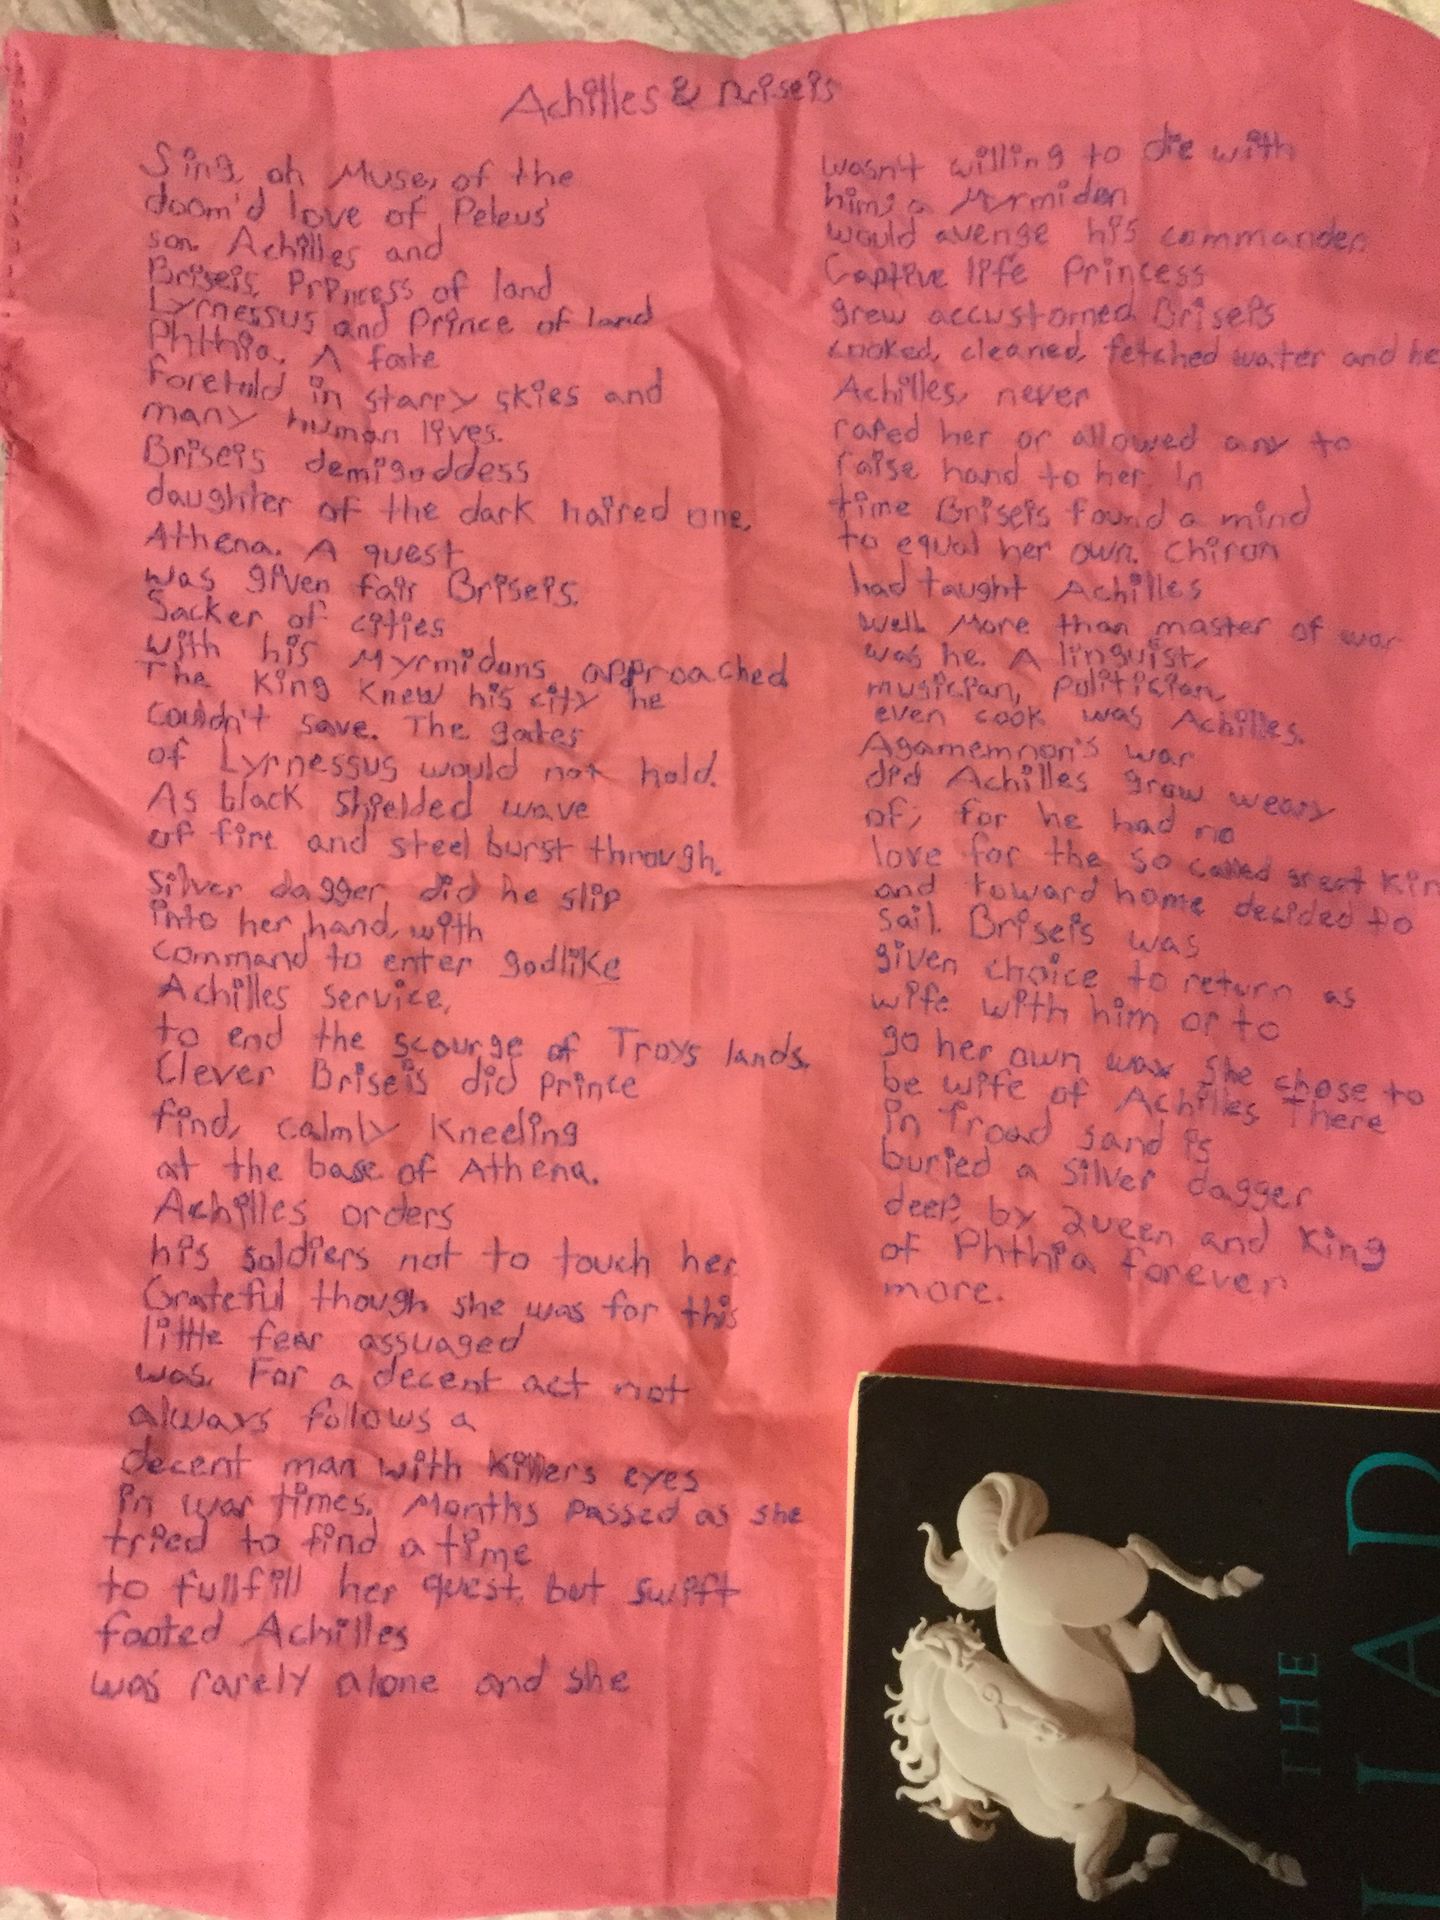 Achilles & Briseis
Sing, oh Muse, of the
doom'd love of Peleus'
son. Achilles and
Briseis, Princess of land
Lyrnessus and Prince of land
Phthia. A fate
foretold in starry skies and
many human lives.
Briseis demigoddess
daughter of the dark haired one,
Athena. A quest
was given fair Briseis.
Sacker of cities
with his Myrmidons approached
The King knew his city he
couldn't save. The gates
of Lyrnessus would not hold.
As black shielded wave
of fire and steel burst through,
silver dagger did he slip
into her hand, with
command to enter godlike
Achilles service,
to end the scourge of Troys lands.
Clever Briseis did prince
find, calmly kneeling
at the base of Athena.
Achilles orders
his soldiers not to touch her.
Grateful though she was for this
little fear assuaged
was. For a decent act not
always follows a
decent man with killers eyes
in war times. Months passed as she
tried to find a time
to fullfill her quest, but swift
footed Achilles
was rarely alone and she
wasn't willing to die with
him; a Myrmidon
would avenge his commander.
Captive life Princess
grew accustomed. Briseis
cooked, cleaned, fetched water and he
Achilles, never
raped her or allowed any to
raise hand to her. In
time Briseis found a mind
to equal her own. Chiron
had taught Achilles
well. More than master of war
was he. A linguist,
musician, politician,
even cook was Achilles.
Agamemnon's war
did Achilles grow weary
of; for he had no
love for the so called great Kin
and toward home decided to
sail. Briseis was
given choice to return as
wife with him or to
go her own way she chose to
be wife of Achilles There
in Troad sand is
buried a silver dagger
deep, by Queen and King
of Phthia forever
more.
THE
ILIAD